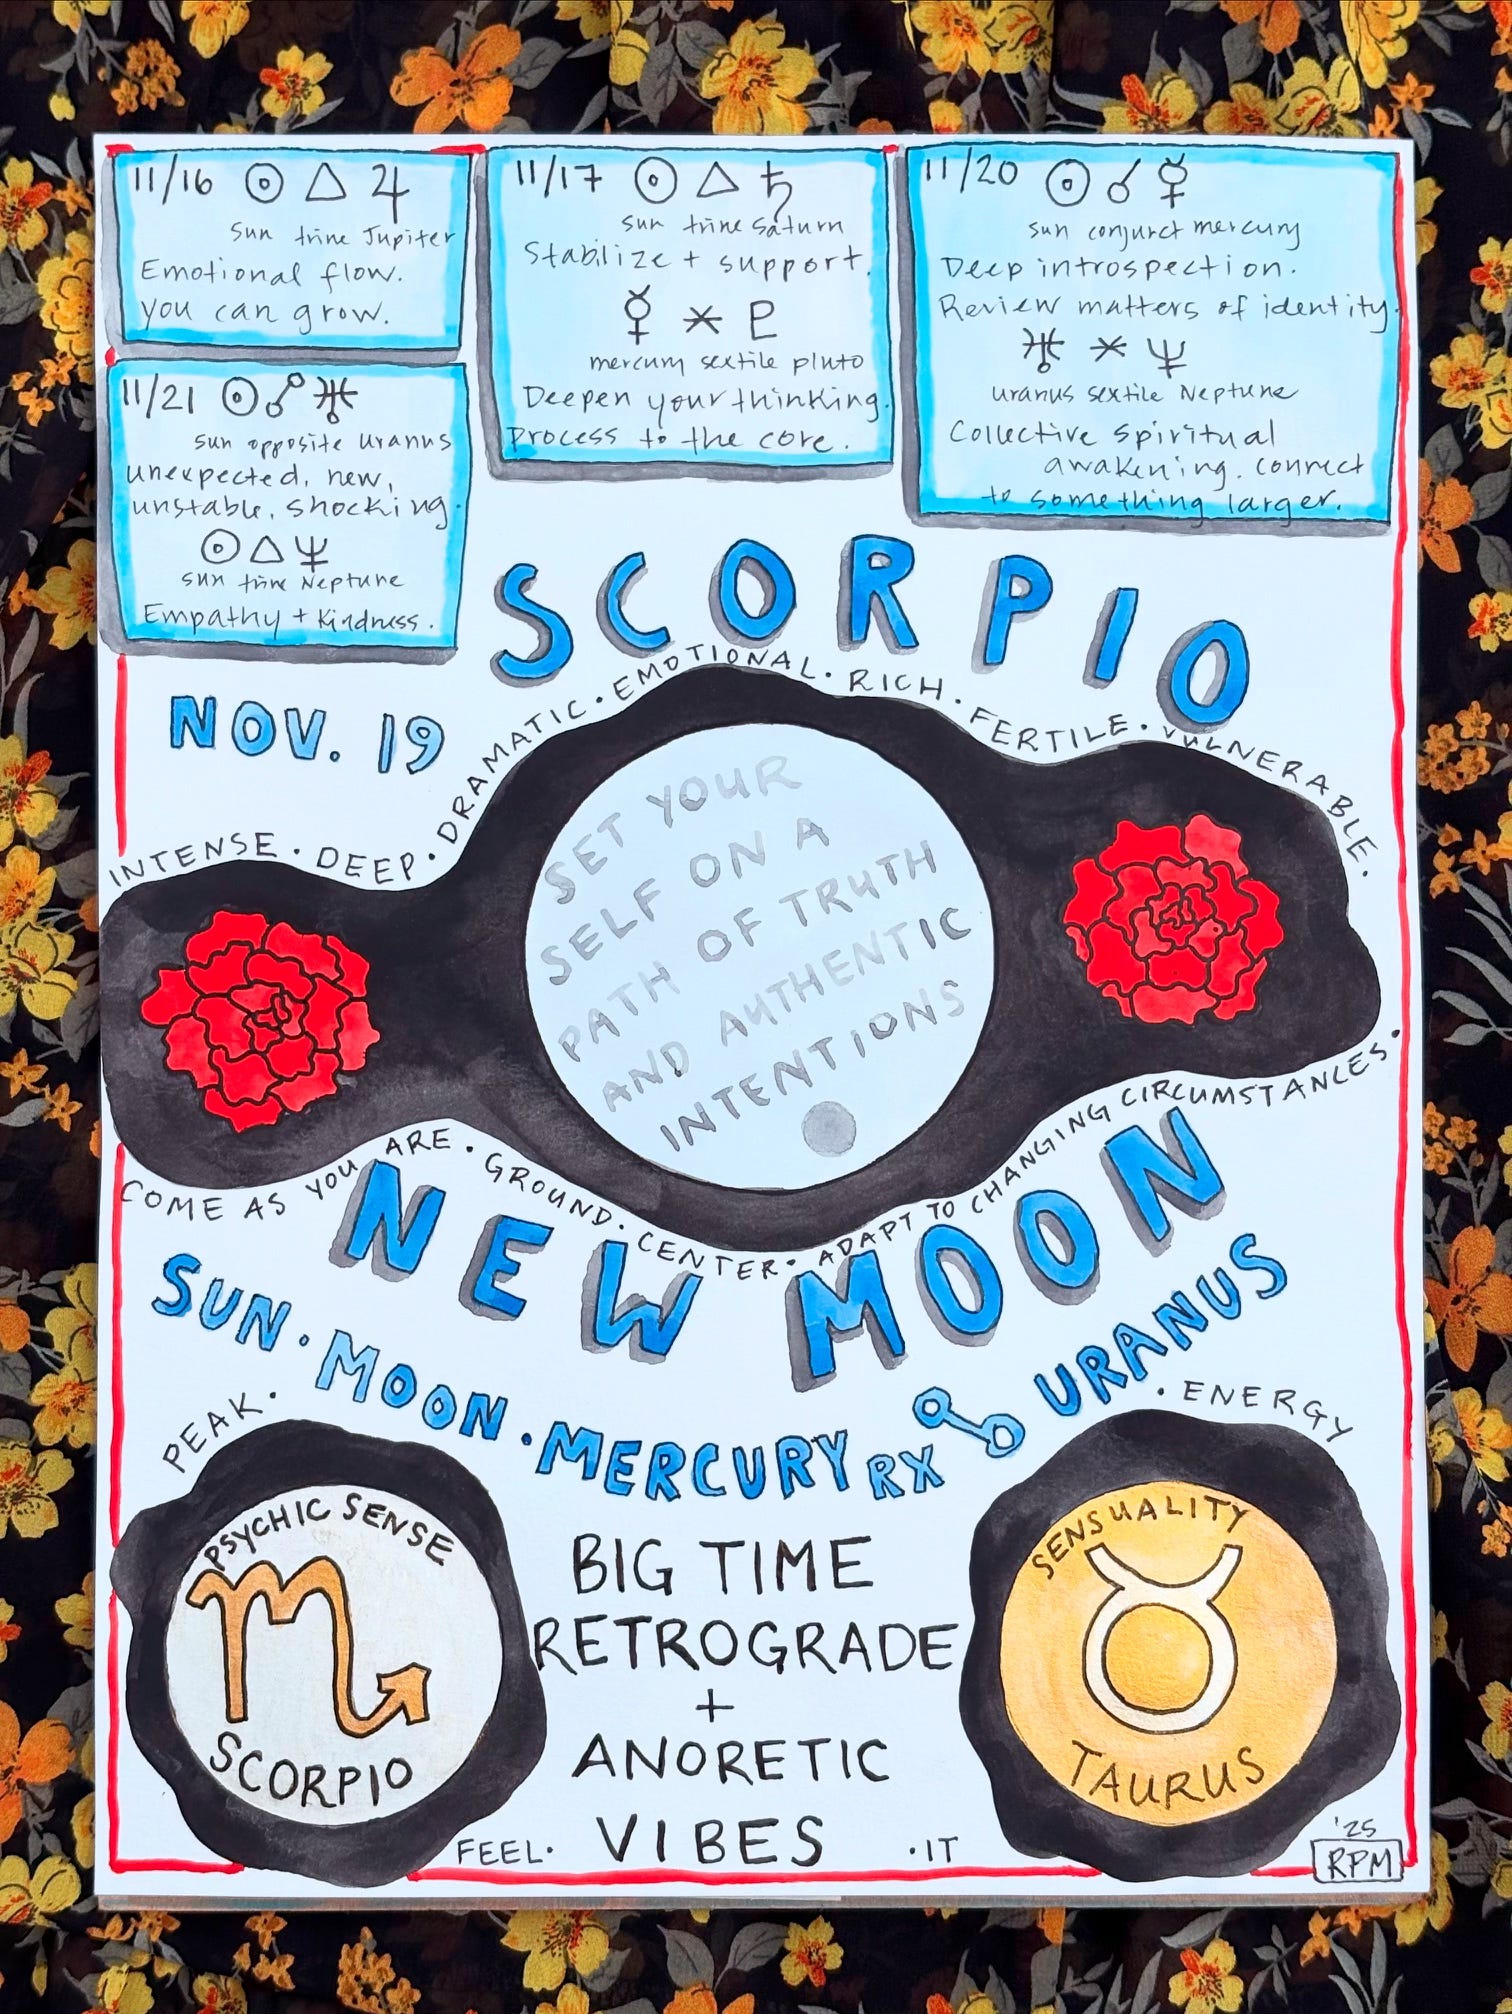 11/16 ☉ △ ♃
sun trine Jupiter
Emotional flow.
you can grow.
11/17 ☉ △ ♄
sun trine Saturn
Stabilize + support.
☿ ⚹ ♇
mercury sextile pluto
Deepen your thinking.
Process to the core.
11/20 ☉ ☌ ☿
sun conjunct mercury
Deep introspection.
Review matters of identity.
♅ ⚹ ♆
uranus sextile Neptune
Collective spiritual
awakening. connect
to something larger.
11/21 ☉ ☍ ♅
sun opposite uranus
unexpected, new,
unstable, shocking.
☉ △ ♆
sun trine Neptune
Empathy + kindness.
SCORPIO
NOV. 19
INTENSE · DEEP · DRAMATIC · EMOTIONAL · RICH · FERTILE · VULNERABLE ·
SET YOUR
SELF ON A
PATH OF TRUTH
AND AUTHENTIC
INTENTIONS
COME AS YOU ARE · GROUND · CENTER · ADAPT TO CHANGING CIRCUMSTANCES ·
NEW MOON
SUN · MOON · MERCURY RX ☍ URANUS
PEAK ·
· ENERGY
PSYCHIC SENSE
♏
SCORPIO
BIG TIME
RETROGRADE
+
ANORETIC
VIBES
SENSUALITY
♉
TAURUS
FEEL ·
· IT
'25
RPM